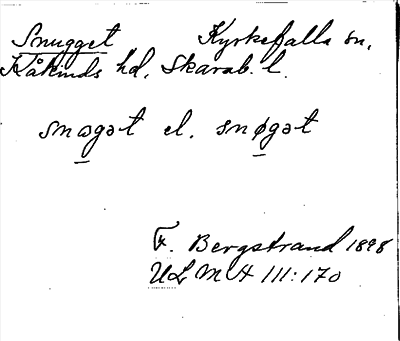 Snugget Kyrkefalla sn,
Kåkinds hd, Skarab. l.
snɷgət el. snøgət
F. Bergstrand 1898
ULMA 111:170